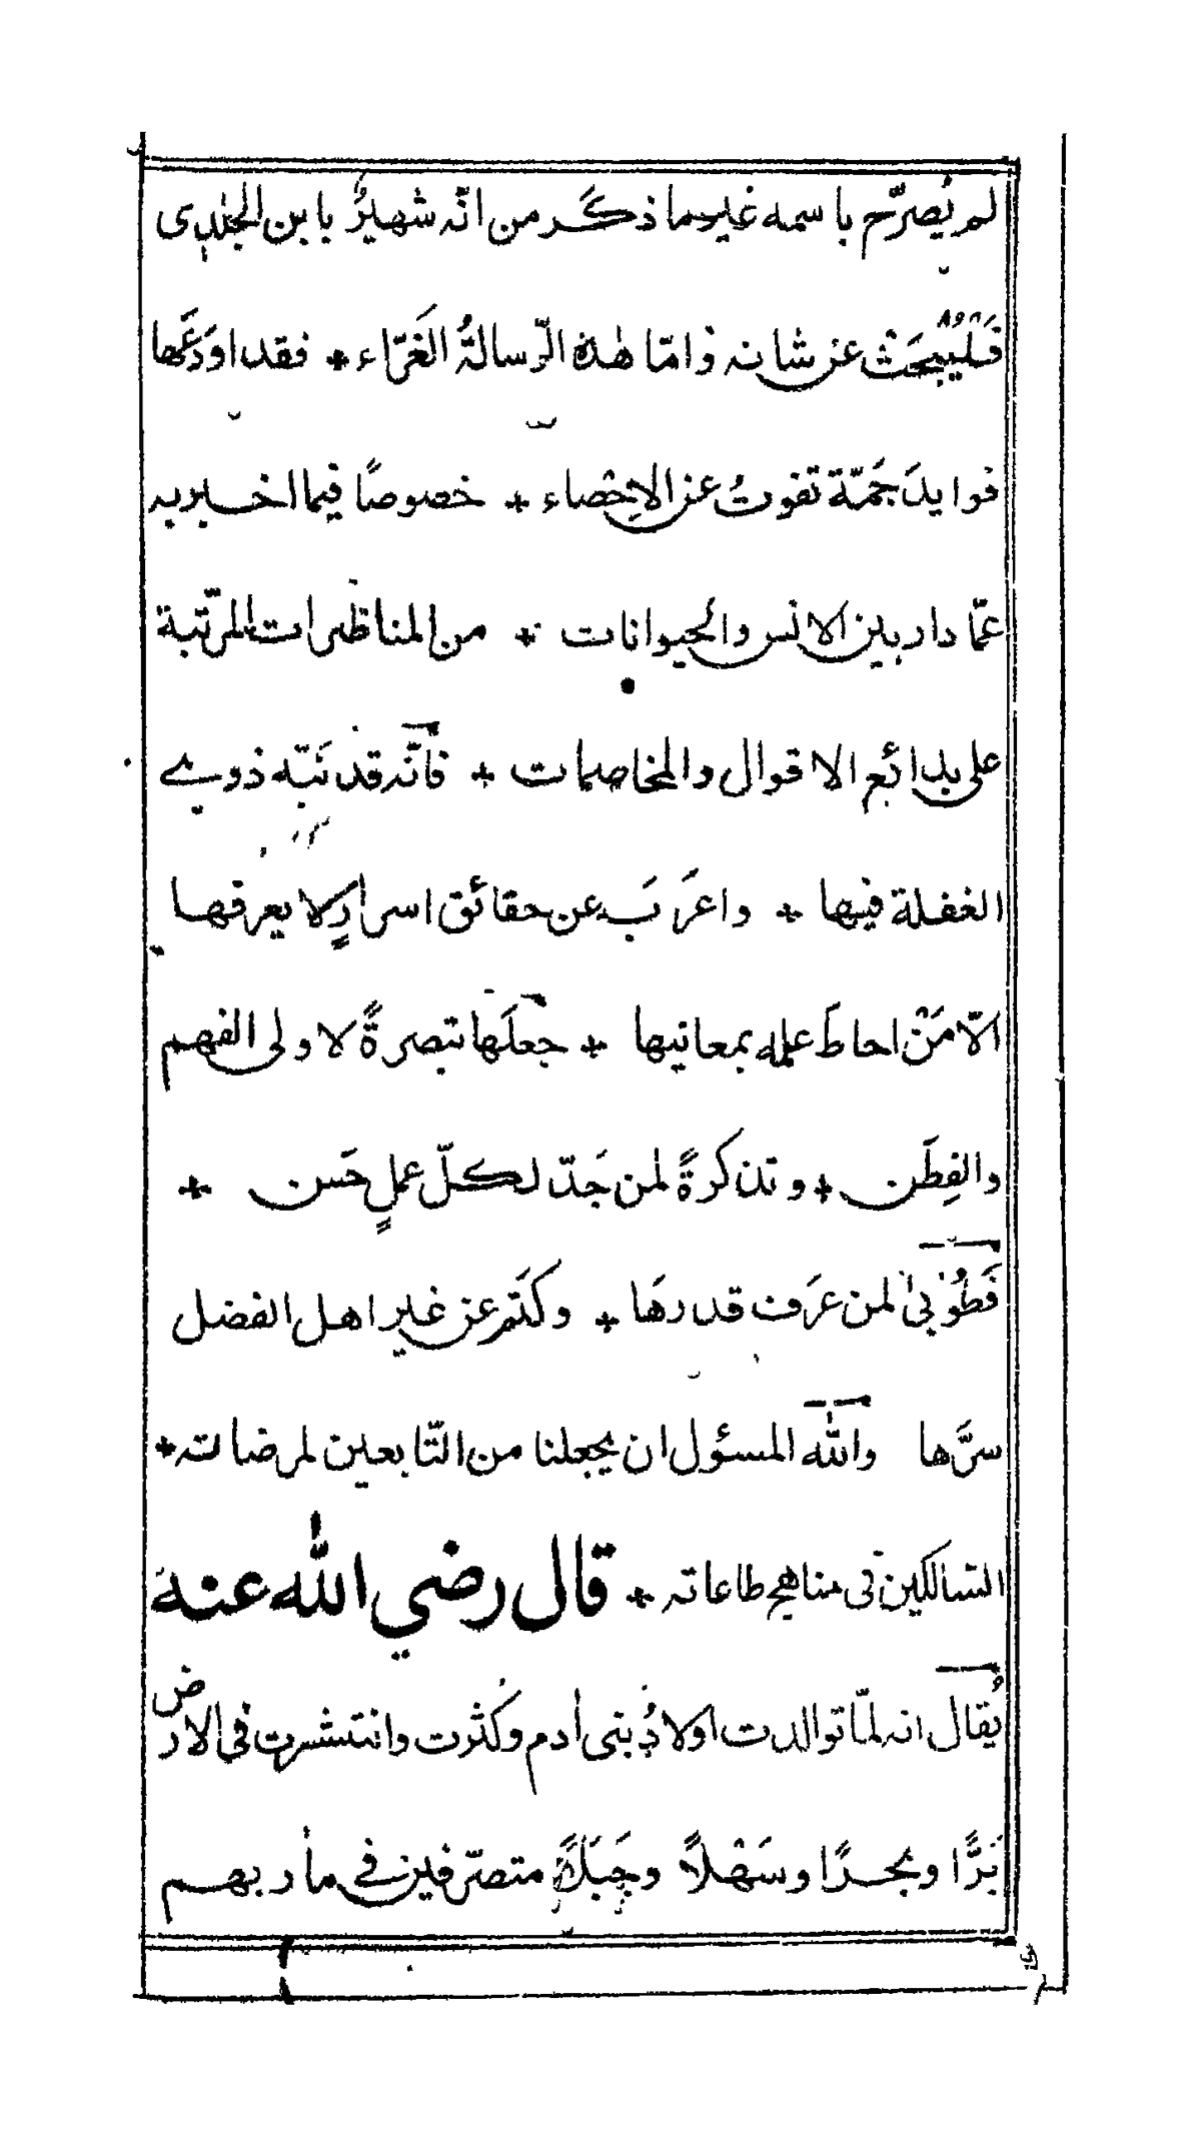 لم يُصرّح باسمه غير ما ذكر من انّه شهيرٌ بابن الجلدى
فَلْيُبحَثْ عن شانه وامّا هٰذه الرّسالةُ الغَرّاء + فقد اودَعَها
فوايدَ جَمّة تفوتُ عن الاِحْصاء + خصوصًا فيما اخبر به
عمّا دار بين الانس والحيوانات + من المناظرات المرتّبة
على بدائع الاقوال والمخاصمات + فانّه قد نَبّه ذوى
الغفلة فيها + واعرَبَ عن حقائق اسرارٍ لا يعرفها
الّا مَنْ احاطَ علمه بمعانيها + جعلَها تبصرةً لاولى الفهم
والفِطَن + وتذكرةً لمن جَدّ لكلّ عملٍ حَسن +
فَطُوْبىٰ لمن عرَف قدرهَا + وكتَم عن غير اهل الفضل
سرَّها والله المسئول ان يجعلنا من التّابعين لمرضاته +
السّالكين فى مناهج طاعاته + قال رضي الله عنه
يُقال انه لمّا توالدت اولادُ بنى أدم وكثرت وانتشرت فى الارض
بَرًّا وبحرًا وسَهْلًا وجَبَلًا متصرّفين في مأربهم